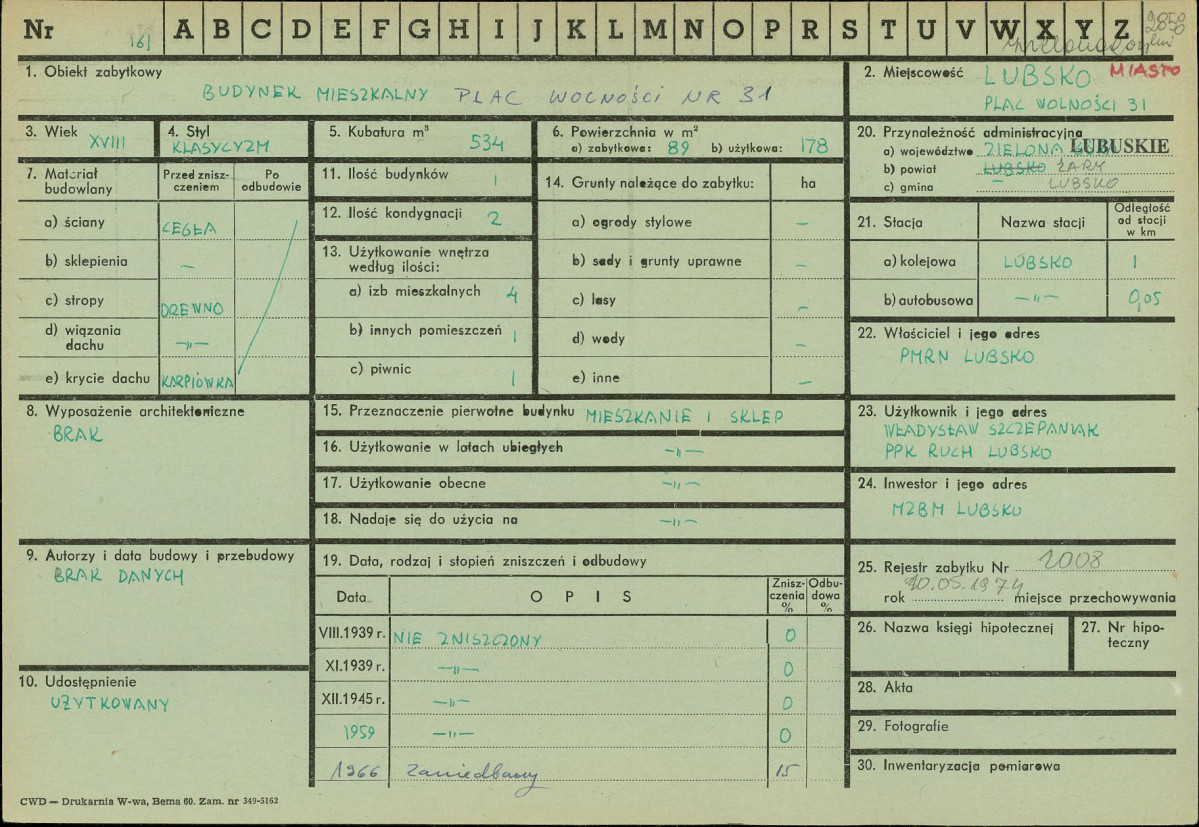 Nr 161 A B C D E F G H I J K L M N O P R S T U V W X Y Z 2850
1. Obiekt zabytkowy
BUDYNEK MIESZKALNY PLAC WOLNOŚCI NR 31
2. Miejscowość LUBSKO MIASTO
PLAC WOLNOŚCI 31
3. Wiek XVIII
4. Styl
KLASYCYZM
5. Kubatura m³ 534
6. Powierzchnia w m²
a) zabytkowa: 89 b) użytkowa: 178
20. Przynależność administracyjna
a) województwo ZIELONA GÓRA LUBUSKIE
b) powiat LUBSKO ŻARY
c) gmina — LUBSKO
7. Materiał budowlany
Przed zniszczeniem
Po odbudowie
a) ściany CEGŁA
b) sklepienia —
c) stropy DREWNO
d) wiązania dachu —„—
e) krycie dachu KARPIÓWKA
11. Ilość budynków 1
12. Ilość kondygnacji 2
13. Użytkowanie wnętrza według ilości:
a) izb mieszkalnych 4
b) innych pomieszczeń 1
c) piwnic 1
14. Grunty należące do zabytku: ha
a) ogrody stylowe —
b) sady i grunty uprawne —
c) lasy —
d) wody —
e) inne —
21. Stacja Nazwa stacji Odległość od stacji w km
a) kolejowa LUBSKO 1
b) autobusowa —„— 0,05
22. Właściciel i jego adres
PMRN LUBSKO
8. Wyposażenie architektoniczne
BRAK
15. Przeznaczenie pierwotne budynku MIESZKANIE I SKLEP
16. Użytkowanie w latach ubiegłych —„—
17. Użytkowanie obecne —„—
18. Nadaje się do użycia na —„—
23. Użytkownik i jego adres
WŁADYSŁAW SZCZEPANIAK
PPK RUCH LUBSKO
24. Inwestor i jego adres
MZBM LUBSKO
9. Autorzy i data budowy i przebudowy
BRAK DANYCH
19. Data, rodzaj i stopień zniszczeń i odbudowy
Data OPIS Zniszczenia % Odbudowa %
VIII.1939 r. NIE ZNISZCZONY 0
XI.1939 r. —„— 0
XII.1945 r. —„— 0
1959 —„— 0
1966 zaniedbany 15
25. Rejestr zabytku Nr 2008
rok 10.05.1974 miejsce przechowywania
26. Nazwa księgi hipotecznej
27. Nr hipoteczny
10. Udostępnienie
UŻYTKOWANY
28. Akta
29. Fotografie
30. Inwentaryzacja pomiarowa
CWD — Drukarnia W-wa, Bema 60. Zam. nr 349-5162